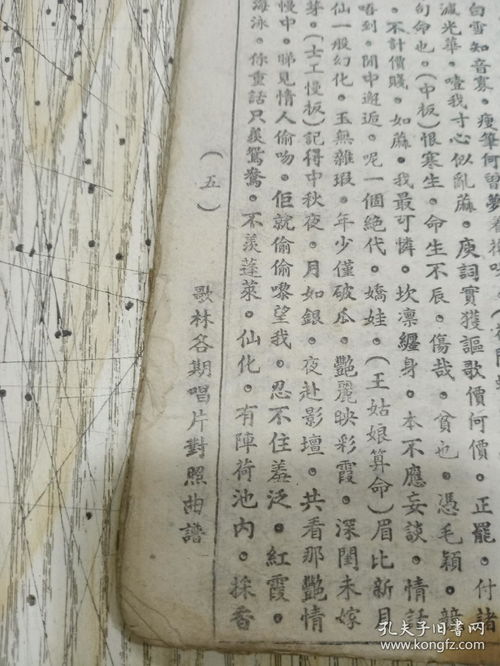 白雪知音寡。瘦筆何曾夢
減光華。噎我寸心似亂蔴。庾詞實獲謳歌價何價。正罷。付諸
句命也。(中板)恨寒生。命生不辰。傷哉。貧也。憑毛穎。
。不計價賤。如蔴。我最可憐。坎凜纒身。本不應妄談。情話
唔到。閒中邂逅。呢一個絕代。嬌娃。(王姑娘算命)眉比新月
仙一般幻化。玉無雜瑕。年少僅破瓜。艷麗映彩霞。深閨未嫁
芽。(士工慢板)記得中秋夜。月如銀。夜赴影壇。共看那艷情
慢中。睇見情人偷吻。佢就偷偷嚟望我。忍不住羞泛。紅霞。
海泳。你重話只羨鴛鴦。不羨蓬萊。仙化。有陣荷池內。採香
(五)
歌林各期唱片對照曲譜
孔夫子旧書网
kongfz.com